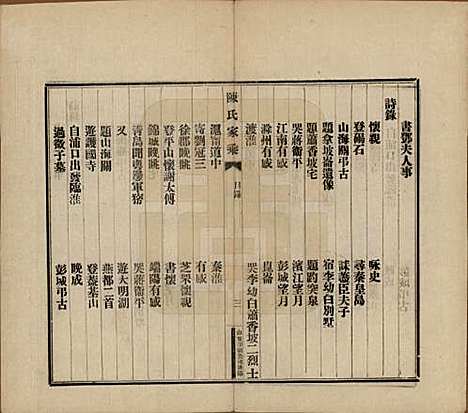 書鄧夫人事
詩錄
懷親
詠史
登碣石
尋秦皇島
山海關弔古
誄藝臣夫子
拿坡崙遺像
宿李幼白別墅
題蕭香坡宅
題趵突泉
哭蔣衛平
濱江望月
江南有感
彭城望月
滁州有感
崑崙
渡淮
哭李幼白蕭香坡二烈士
陳氏家乘
目錄
三
滬甯道中
秦淮
寄劉冠三
有感
徐郡晚眺
芝罘懷親
登平山懷謝太傅
書懷
錦城晚眺
端陽有感
青島閱操
哭蔣衛平
又
遊大明湖
題山海關
燕都二首
遊護國寺
登燕基山
自浦口出發臨淮
晚成
過微子墓
彭城弔古